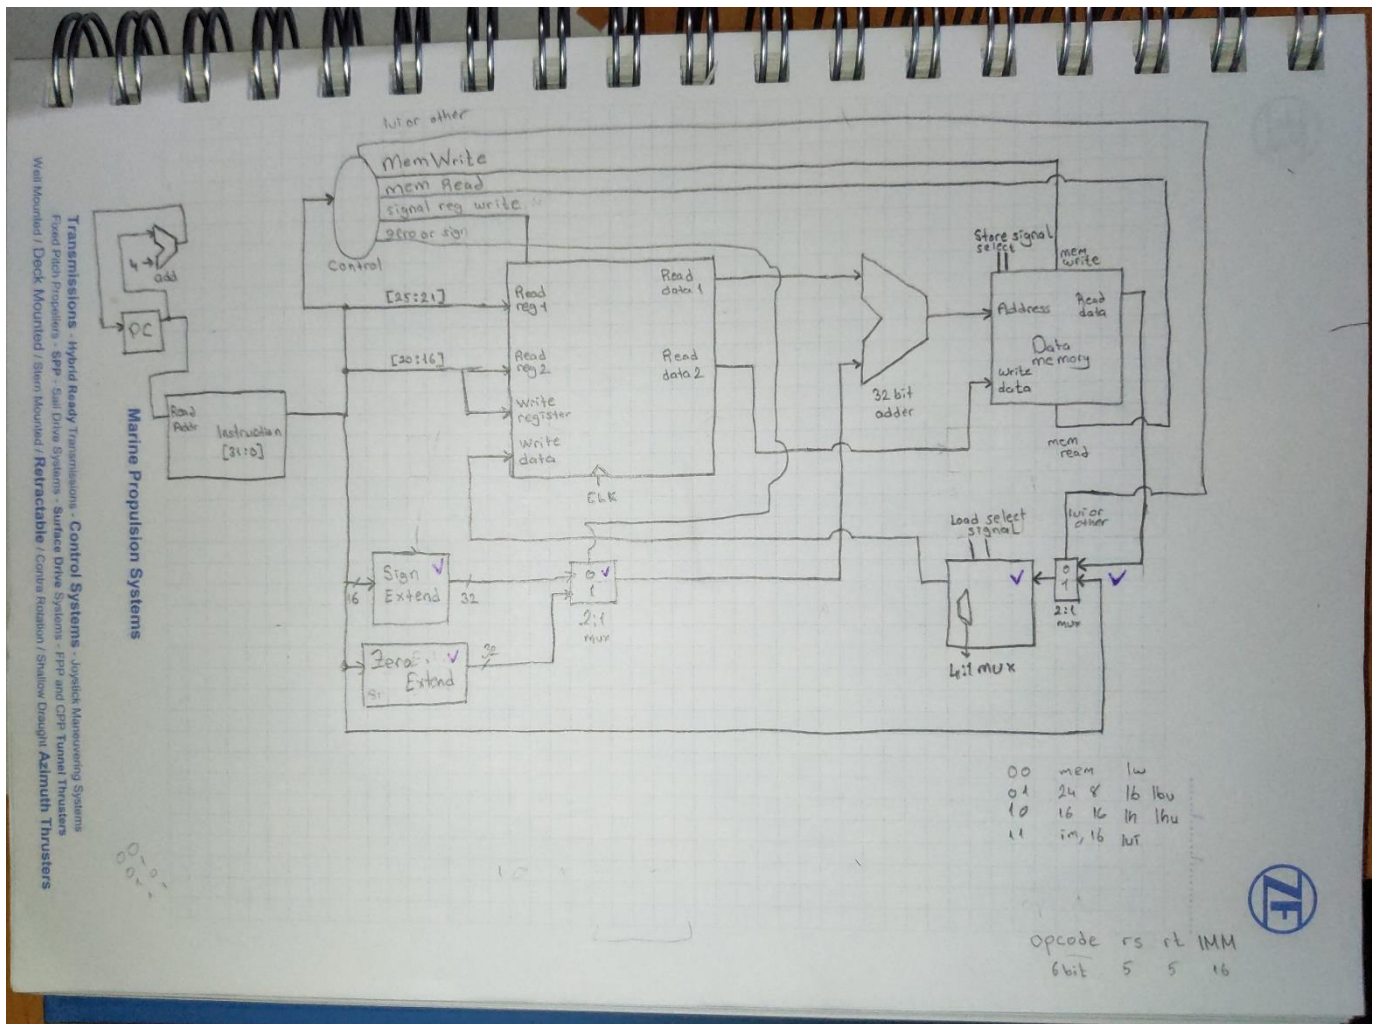 lui or other
MemWrite
mem Read
signal reg write
zero or sign
Control
4
add
PC
Read
Addr
Instruction
[31:0]
[25:21]
[20:16]
Read
reg 1
Read
reg 2
Write
register
Write
data
Read
data 1
Read
data 2
CLK
32 bit
adder
Store signal
select
mem
write
Address
Read
data
Data
memory
write
data
mem
read
lui or
other
Load select
signal
0
1
2:1
mux
4:1 mux
16
Sign
Extend
32
0
1
2:1
mux
Zero
Extend
32
00 mem lw
01 24 8 lb lbu
10 16 16 lh lhu
11 im, 16 lui
opcode rs rt IMM
6bit 5 5 16
ZF
Marine Propulsion Systems
Transmissions - Hybrid Ready Transmissions - Control Systems - Joystick Maneuvering Systems
Fixed Pitch Propellers - SPP - Sail Drive Systems - Surface Drive Systems - FPP and CPP Tunnel Thrusters
Well Mounted / Deck Mounted / Stern Mounted / Retractable / Contra Rotation / Shallow Draught Azimuth Thrusters